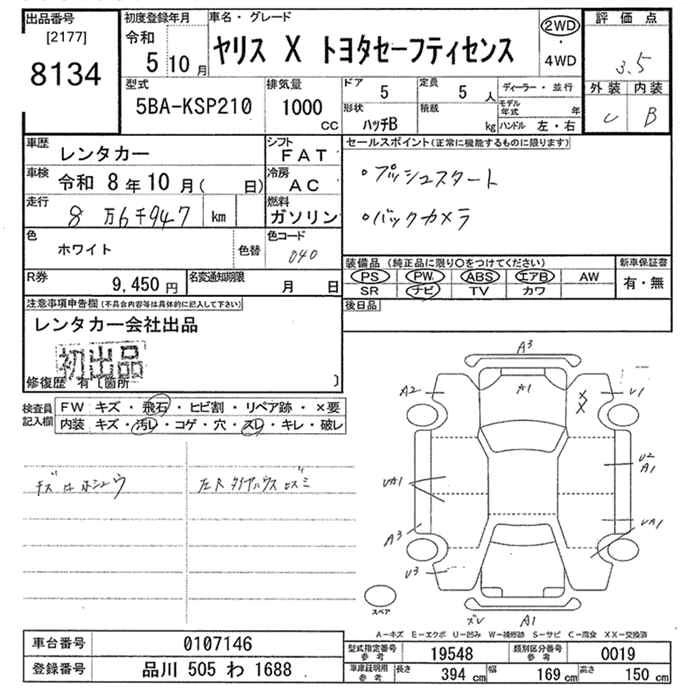 出品番号
[2177]
8134
初度登録年月
令和
5 10 月
車名・グレード
ヤリス X トヨタセーフティセンス
2WD
・
4WD
評価点
3.5
外装 内装
C B
型式
5BA-KSP210
排気量
1000
cc
ドア 5
定員 5 人
形状
ハッチB
積載
kg
ディーラー・並行
モデル年式 年
ハンドル 左・右
車歴
レンタカー
シフト
FAT
車検
令和 8 年 10 月( 日)
冷房
AC
走行
8 万 6 千 947 km
燃料
ガソリン
色
ホワイト
色替
色コード
040
R券
9,450 円
名変通知期限
月 日
セールスポイント(正常に機能するものに限ります)
・プッシュスタート
・バックカメラ
装備品(純正品に限り○をつけてください)
PS PW ABS エアB AW
SR ナビ TV カワ
新車保証書
有・無
後日品
注意事項申告欄(不具合内容等は具体的に記入して下さい)
レンタカー会社出品
初出品
修復歴 有〔箇所 〕
検査員記入欄
FW キズ・飛石・ヒビ割・リペア跡・×要
内装 キズ・汚レ・コゲ・穴・スレ・キレ・破レ
A3
A2
A1
U1
XX
U2
A1
UA1
UA1
A3
U3
スペア
A1
A-キズ E-エクボ U-凹み W-補修跡 S-サビ C-腐食 XX-交換済
車台番号 0107146
登録番号 品川 505 わ 1688
型式指定番号
参考
19548
類別区分番号
参考
0019
車庫証明用
参考
長さ 394 cm 幅 169 cm 高さ 150 cm